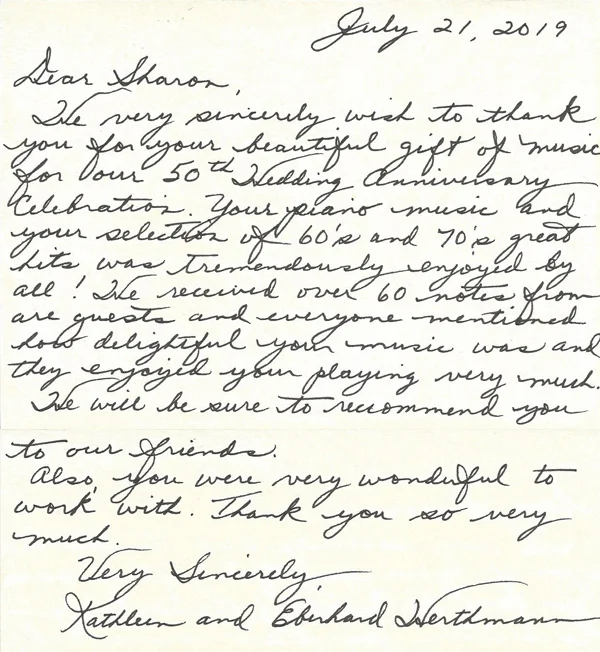 July 21, 2019
Dear Sharon,
We very sincerely wish to thank
you for your beautiful gift of music
for our 50th Wedding Anniversary
Celebration. Your piano music and
your selection of 60's and 70's great
hits was tremendously enjoyed by
all! We received over 60 notes from
are guests and everyone mentioned
how delightful your music was and
they enjoyed your playing very much.
We will be sure to reccommend you
to our friends.
Also, you were very wonderful to
work with. Thank you so very
much.
Very Sincerely,
Kathleen and Eberhard Werthmann